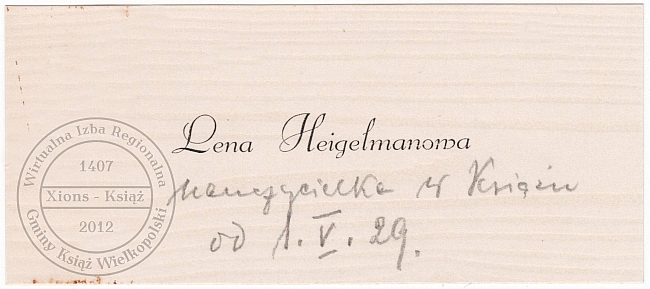 Lena Heigelmanowa
nauczycielka w Książu
od 1. V. 29.
Wirtualna Izba Regionalna
1407
Xions - Książ
2012
Gminy Książ Wielkopolski